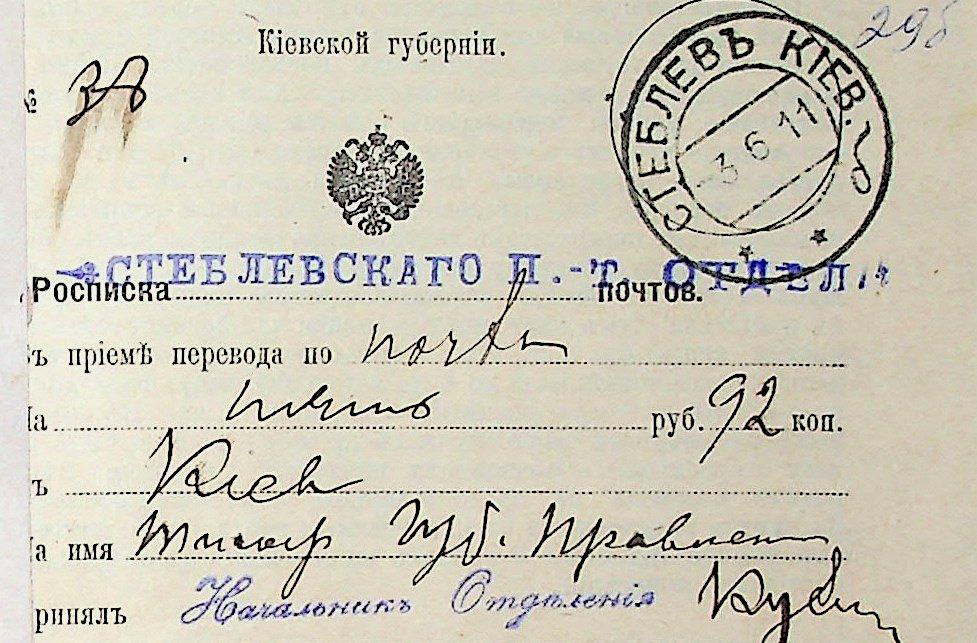 Кіевской губерніи.
№ 38
295
СТЕБЛЕВЪ КІЕВ.
3 6 11
СТЕБЛЕВСКАГО П.-Т. ОТДѢЛ
Росписка почтов.
въ пріемѣ перевода по почтѣ
На пять руб. 92 коп.
въ Кіевъ
На имя Типогр Губ. Правлен
Принялъ Начальникъ Отдѣленія